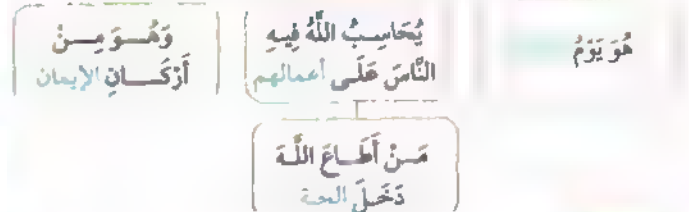 هُوَ يَوْمُ
يُحَاسِبُ اللَّهُ فِيهِ
النَّاسَ عَلَى أعمالهم
وَهُــوَ مِــنْ
أَرْكَــانِ الإيمان
مَــنْ أَطَــاعَ اللَّهَ
دَخَلَ الجنة